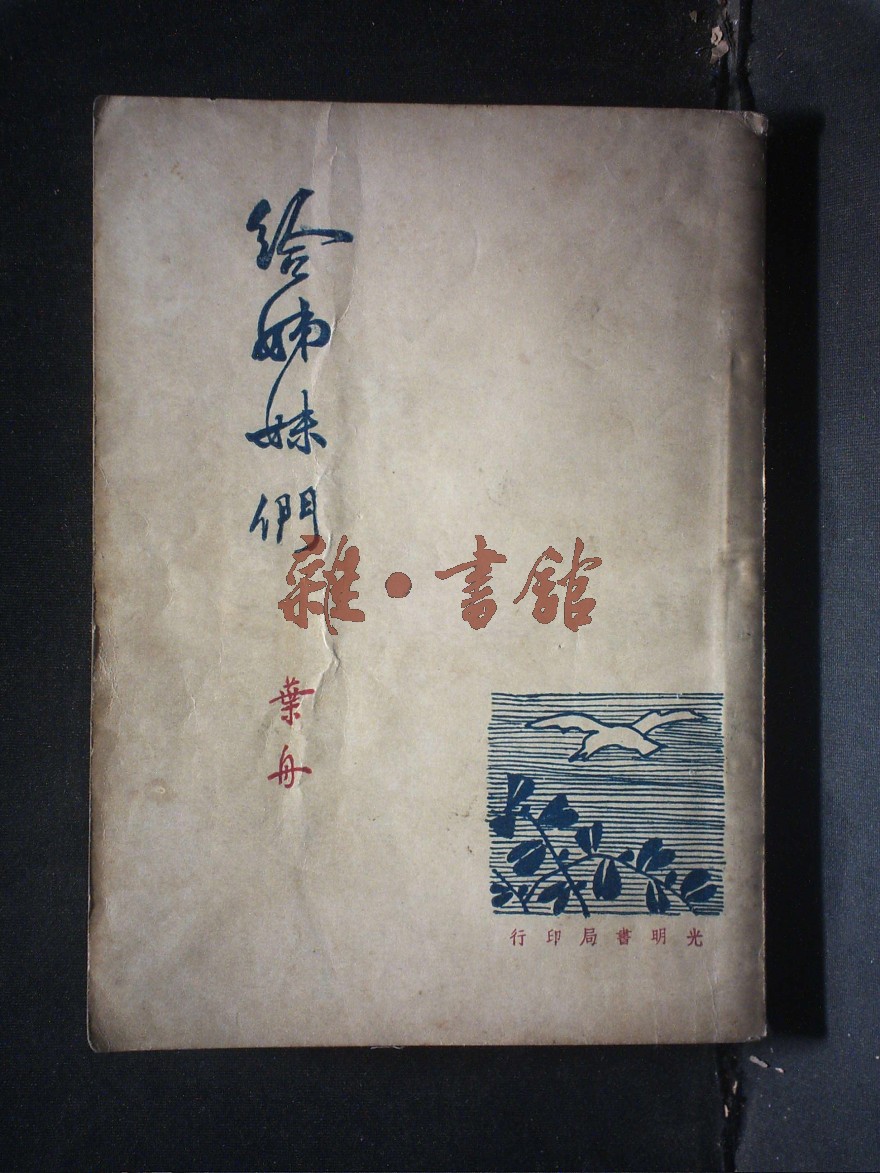 給姊妹們
葉舟
雜·書館
光明書局印行